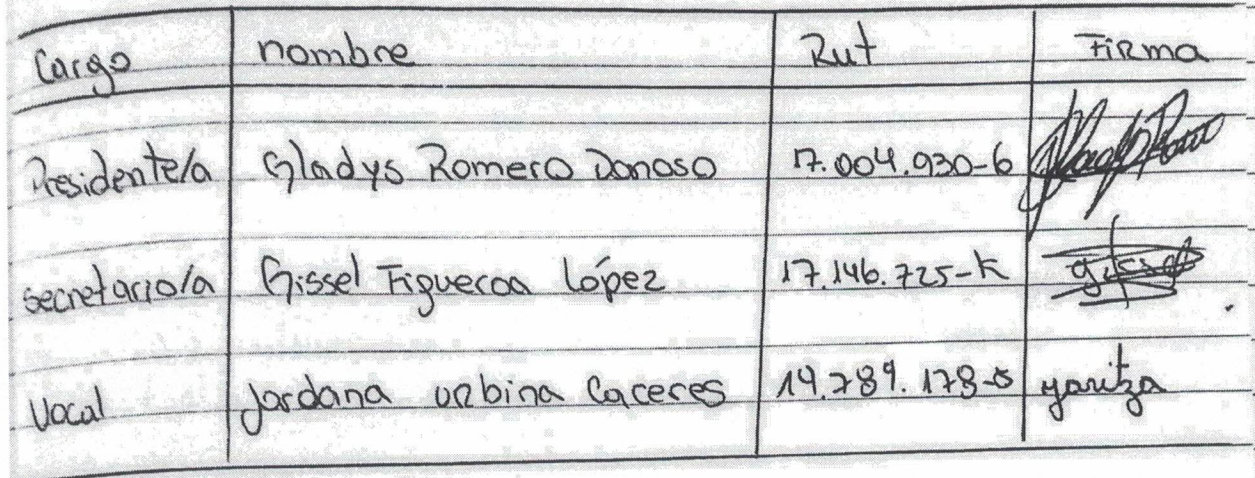 Cargo nombre Rut Firma
Presidente/a Gladys Romero Donoso 17.004.930-6
secretario/a Gissel Figueroa López 17.146.725-K
Vocal Jordana urbina Caceres yaritza